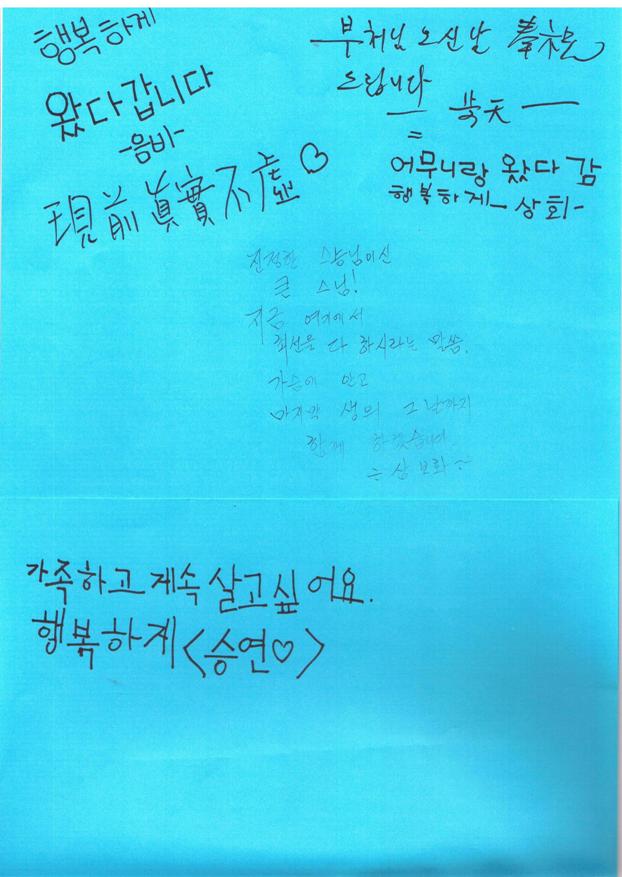 행복하게
왔다갑니다
-음비-
現前眞實不虛♡
부처님 오신날 奉祝
드립니다
天
어무니랑 왔다 감
행복하게- 상희-
진정한 스승님이신
큰 스님!
지금 여기에서
최선을 다 하시라는 말씀.
가슴에 안고
마지막 생의 그날까지
함께 하겠습니다.
삼보화~
가족하고 계속 살고싶어요.
행복하게<승연♡>